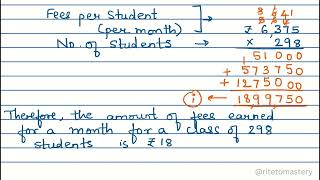 Fees per Student
(per month) ₹ 6,375
No. of Students × 298
51000
+ 573750
+ 1275000
(i) ← 1899750
Therefore, the amount of fees earned
for a month for a class of 298
students is ₹18
@ritetomastery